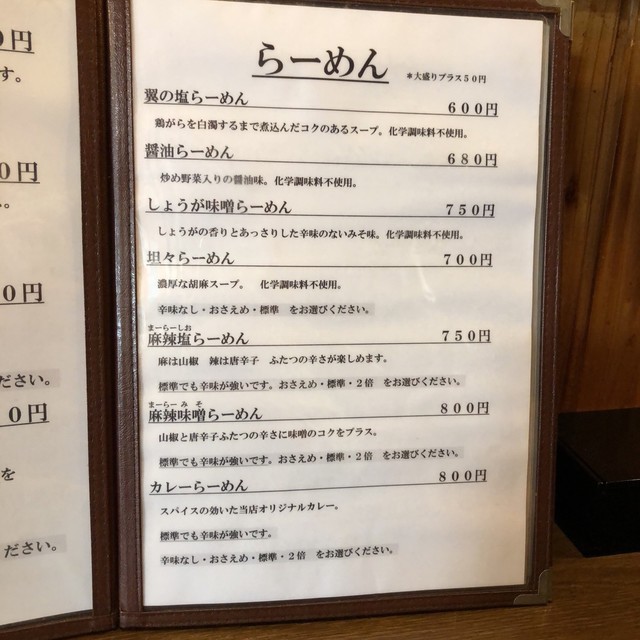 0円
す。
0円
。
00円
ださい。
00円
を
ださい。
らーめん ＊大盛りプラス５０円
翼の塩らーめん ６００円
鶏がらを白濁するまで煮込んだコクのあるスープ。化学調味料不使用。
醤油らーめん ６８０円
炒め野菜入りの醤油味。化学調味料不使用。
しょうが味噌らーめん ７５０円
しょうがの香りとあっさりした辛味のないみそ味。化学調味料不使用。
坦々らーめん ７００円
濃厚な胡麻スープ。 化学調味料不使用。
辛味なし・おさえめ・標準 をお選びください。
まーらーしお
麻辣塩らーめん ７５０円
麻は山椒 辣は唐辛子 ふたつの辛さが楽しめます。
標準でも辛味が強いです。おさえめ・標準・２倍 をお選びください。
まーらーみそ
麻辣味噌らーめん ８００円
山椒と唐辛子ふたつの辛さに味噌のコクをプラス。
標準でも辛味が強いです。おさえめ・標準・２倍 をお選びください。
カレーらーめん ８００円
スパイスの効いた当店オリジナルカレー。
標準でも辛味が強いです。
辛味なし・おさえめ・標準・２倍 をお選びください。